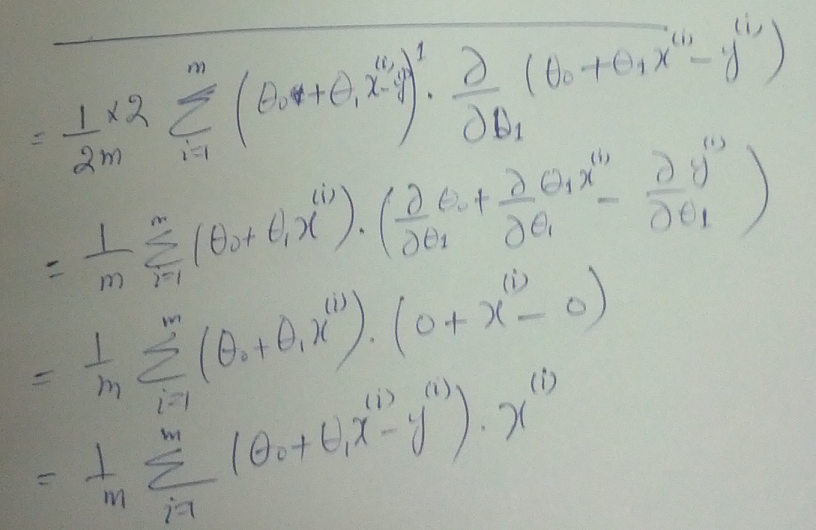 = \frac{1}{2m} \times 2 \sum_{i=1}^{m} (\theta_0 + \theta_1 x^{(i)} - y^{(i)})^1 \cdot \frac{\partial}{\partial \theta_1} (\theta_0 + \theta_1 x^{(i)} - y^{(i)})
= \frac{1}{m} \sum_{i=1}^{m} (\theta_0 + \theta_1 x^{(i)}) \cdot (\frac{\partial}{\partial \theta_1} \theta_0 + \frac{\partial}{\partial \theta_1} \theta_1 x^{(i)} - \frac{\partial}{\partial \theta_1} y^{(i)})
= \frac{1}{m} \sum_{i=1}^{m} (\theta_0 + \theta_1 x^{(i)}) \cdot (0 + x^{(i)} - 0)
= \frac{1}{m} \sum_{i=1}^{m} (\theta_0 + \theta_1 x^{(i)} - y^{(i)}) \cdot x^{(i)}